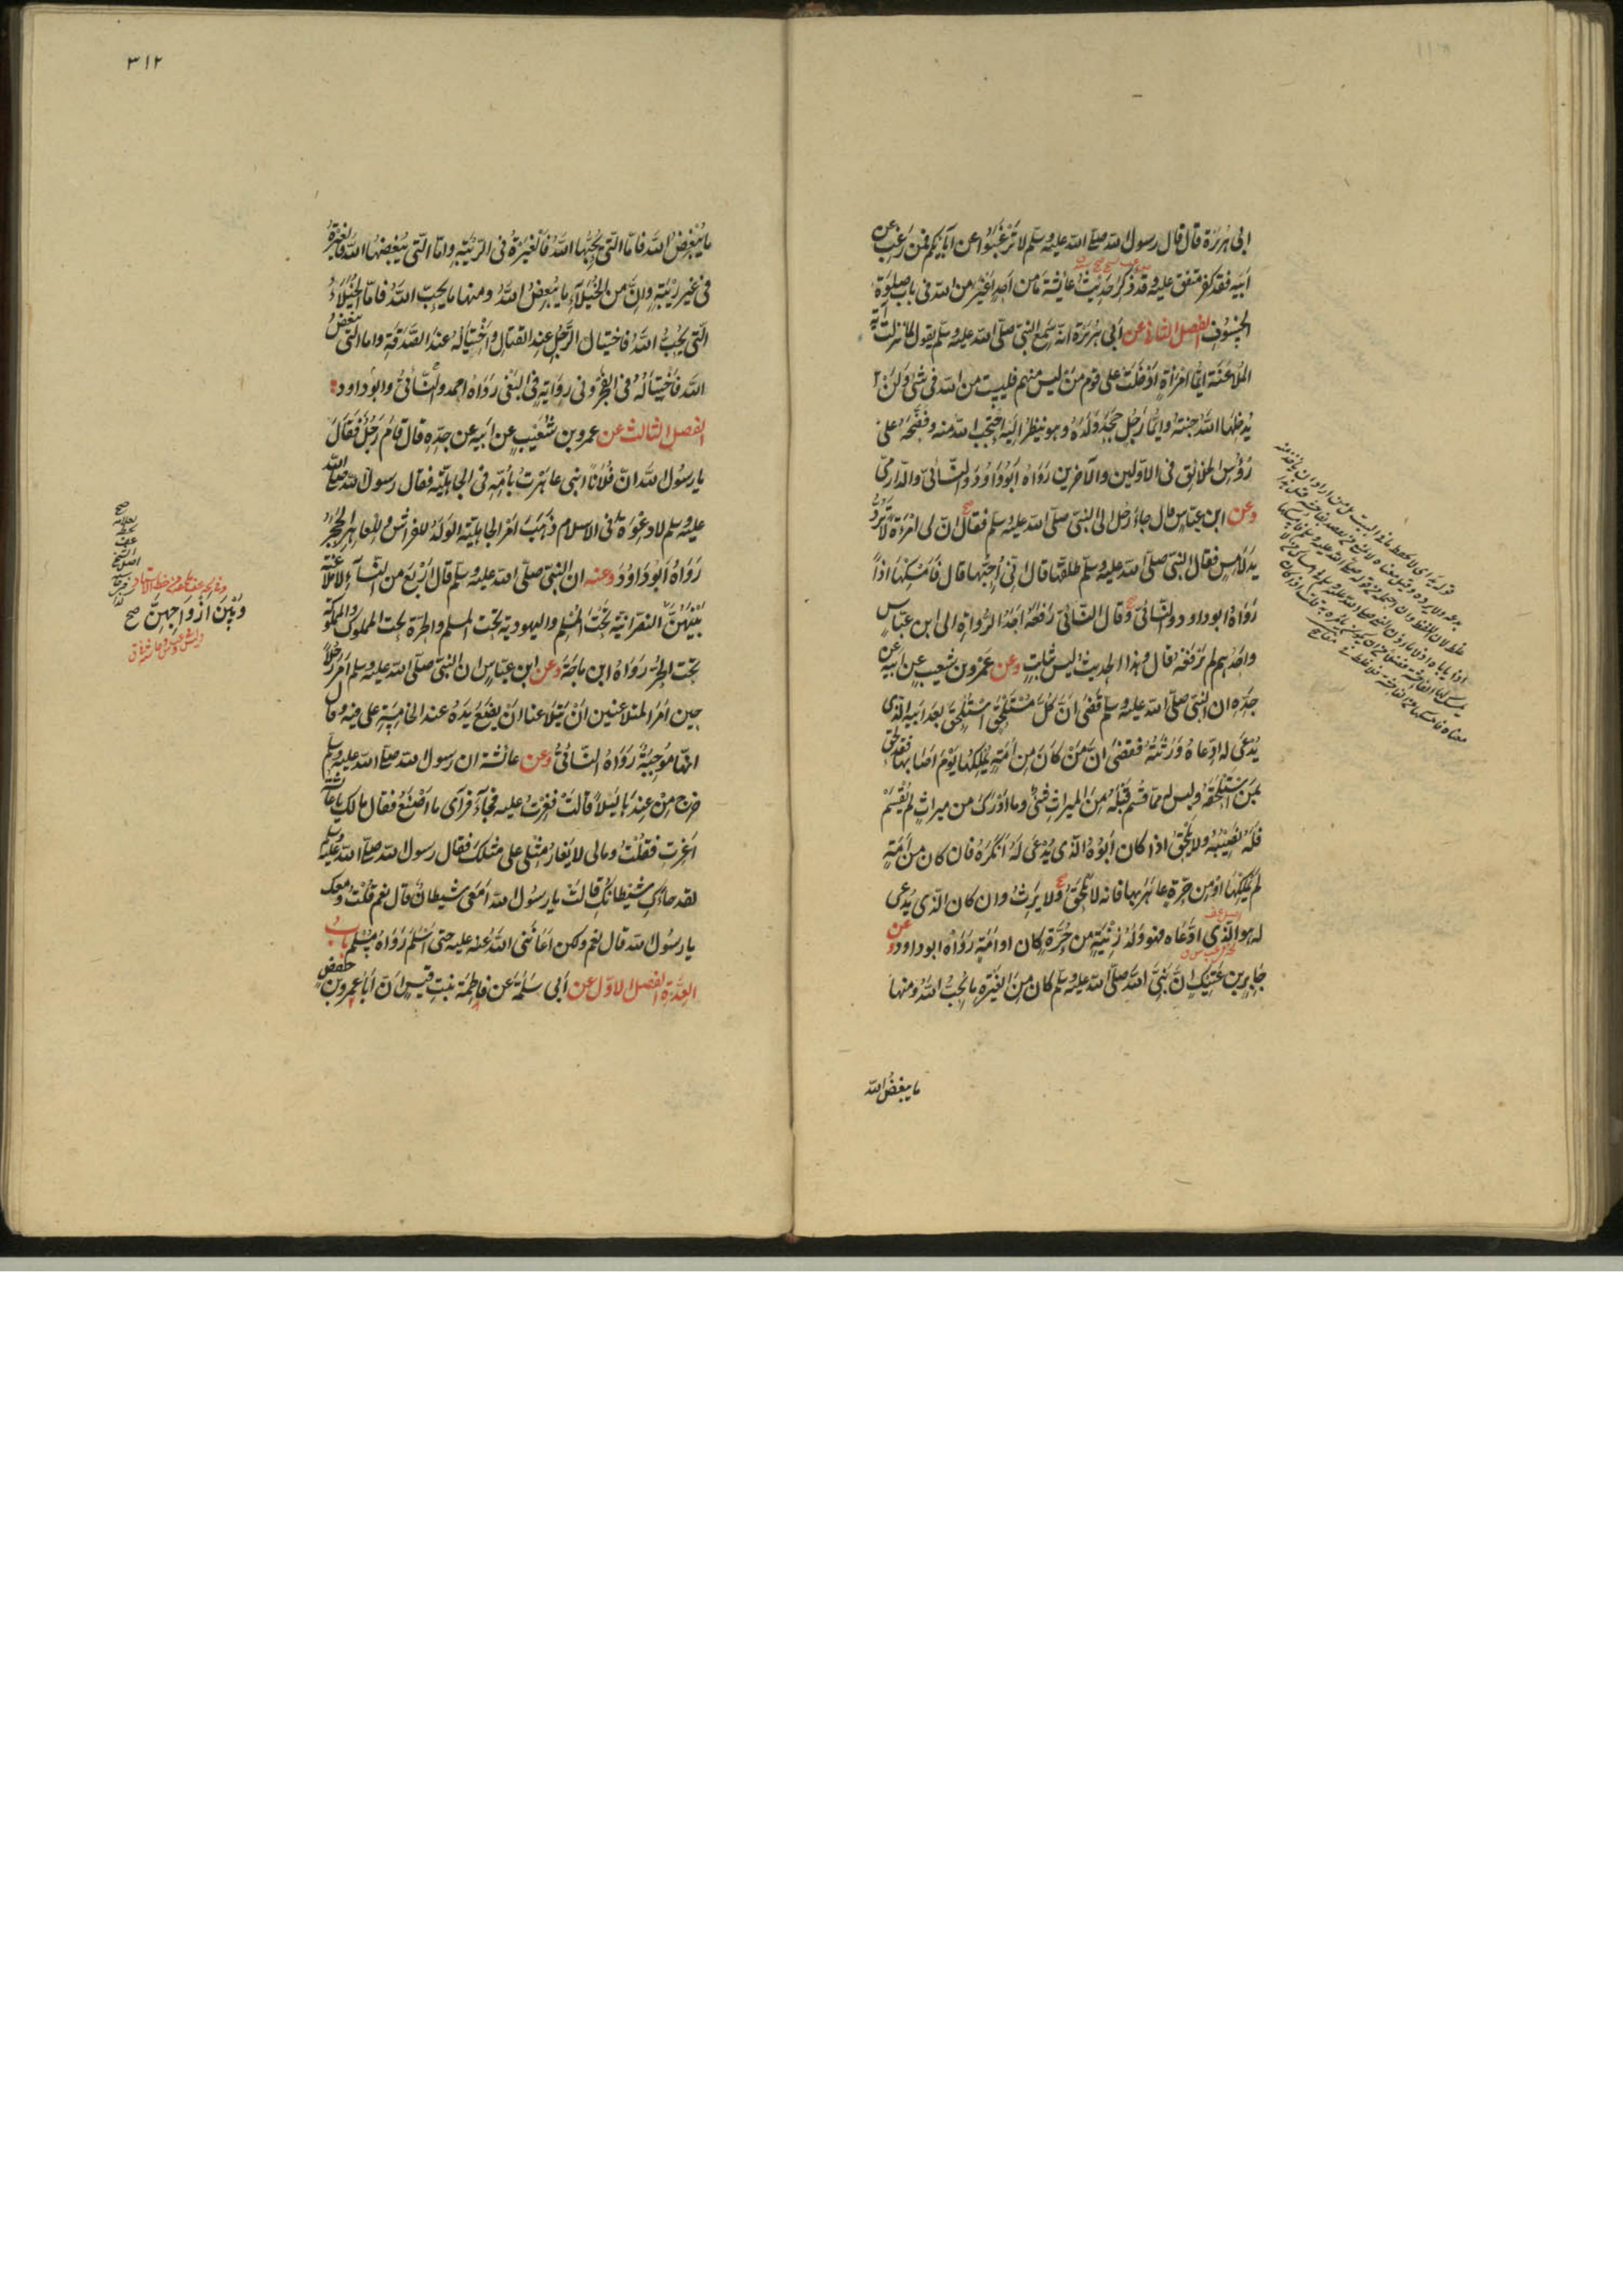 ابى هريرة قال قال رسول الله صلى الله عليه وسلم لا ترغبوا عن آبائكم فمن رغب عن
ابيه فقد كفر متفق عليه وقد ذكر حديث عايشة ما من احد اغير من الله فى باب صلوة
الخسوف الفصل الثانى عن أبى هريرة انه سمع النبى صلى الله عليه وسلم يقول لما نزلت آية
الملاعنة ايما امرأة ادخلت على قوم من ليس منهم فليست من الله فى شئ ولن
يدخلها الله جنته وايما رجل جحد ولده وهو ينظر اليه احتجب الله منه وفضحه على
رؤس الخلائق فى الاولين والآخرين رواه ابو داود والنسائى والدارمى
وعن ابن عباس قال جاء رجل الى النبى صلى الله عليه وسلم فقال ان لى امرأة لا ترد
يد لامس فقال النبى صلى الله عليه وسلم طلقها قال انى أحبها قال فأمسكها اذا
رواه ابو داود والنسائى وقال النسائى رفعه احد الرواة الى ابن عباس
واحدهم لم يرفعه قال وهذا الحديث ليس بثابت وعن عمرو بن شعيب عن ابيه عن
جده ان النبى صلى الله عليه وسلم قضى ان كل مستلحق استلحق بعد ابيه الذى
يدعى له ادعاه ورثته فقضى ان من كان من أمة يملكها يوم اصابها فقد لحق
بمن استلحقه وليس له مما قسم قبله من الميراث شئ وما ادرك من ميراث لم يقسم
فله نصيبه ولا يلحق اذا كان أبوه الذى يدعى له انكره فان كان من أمة
لم يملكها او من حرة عاهر بها فانه لا يلحق ولا يرث وان كان الذى يدعى
له هو الذى ادعاه فهو ولد زنية من حرة كان او امة رواه ابو داود وعن
جابر بن عتيك ان نبى الله صلى الله عليه وسلم كان من الغيرة ما يحب الله ومنها
ما يبغض الله
٣١٢
ما يبغض الله فاما التى يحبها الله فالغيرة فى الريبة واما التى يبغضها الله فالغيرة
فى غير ريبة وان من الخيلاء ما يبغض الله ومنها ما يحب الله فاما الخيلاء
التى يحب الله فاختيال الرجل عند القتال واختياله عند الصدقة واما التى يبغض
الله فاختياله فى الفخر وفى رواية فى البغى رواه احمد والنسائى وابو داود
الفصل الثالث عن عمرو بن شعيب عن ابيه عن جده قال قام رجل فقال
يا رسول الله ان فلانا ابنى عاهرت بأمه فى الجاهلية فقال رسول الله صلى الله
عليه وسلم لا دعوة فى الاسلام ذهب امر الجاهلية الولد للفراش وللعاهر الحجر
رواه أبو داود وعنه ان النبى صلى الله عليه وسلم قال أربع من النساء لا ملاعنة
بينهن النصرانية تحت المسلم واليهودية تحت المسلم والحرة تحت المملوك والمملوكة
تحت الحر رواه ابن ماجة وعن ابن عباس ان النبى صلى الله عليه وسلم امر رجلا
حين امر المتلاعنين أن يتلاعنا ان يضع يده عند الخامسة على فيه وقال
انها موجبة رواه النسائى وعن عائشة ان رسول الله صلى الله عليه وسلم
خرج من عندها ليلا قالت فغرت عليه فجاء فرأى ما اصنع فقال مالك يا عائشة
اغرت فقلت وما لى لا يغار مثلى على مثلك فقال رسول الله صلى الله عليه وسلم
لقد جاءك شيطانك قالت يا رسول الله أمعى شيطان قال نعم قلت ومعك
يا رسول الله قال نعم ولكن اعاننى الله عليه حتى اسلم رواه مسلم باب
العدة الفصل الاول عن أبى سلمة عن فاطمة بنت قيس ان أبا عمرو بن حفص
وبين ازواجهن صح